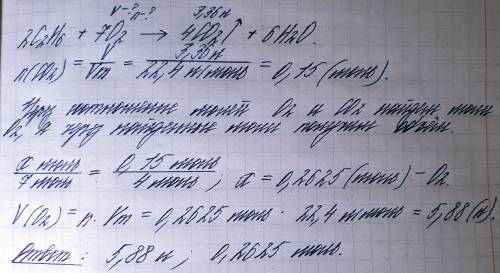 V-? n-? 3,36 л
2C₂H₆ + 7O₂ → 4CO₂↑ + 6H₂O.
n(CO₂) = V/Vm = 3,36 л / 22,4 л/моль = 0,15 (моль).
Через соотношение молей O₂ и CO₂ найдем моли
O₂, а через найденные моли получим объём.
x моль / 7 моль = 0,15 моль / 4 моль ; x = 0,2625 (моль) - O₂.
V(O₂) = n · Vm = 0,2625 моль · 22,4 л/моль = 5,88 (л).
Ответ: 5,88 л ; 0,2625 моль.